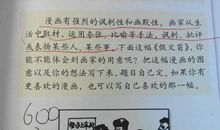 漫画有强烈的讽刺性和幽默性。画家从生
活中取材,运用夸张、比喻等手法,讽刺、批评
或表扬某些人、某些事。下面这幅《假文盲》,你
能不能体会到画家的用意呢?把这幅漫画的图
意以及你的想法写下来,题目自己定。如果你有
更喜欢的漫画,也可以写自己喜欢的那一幅。
600